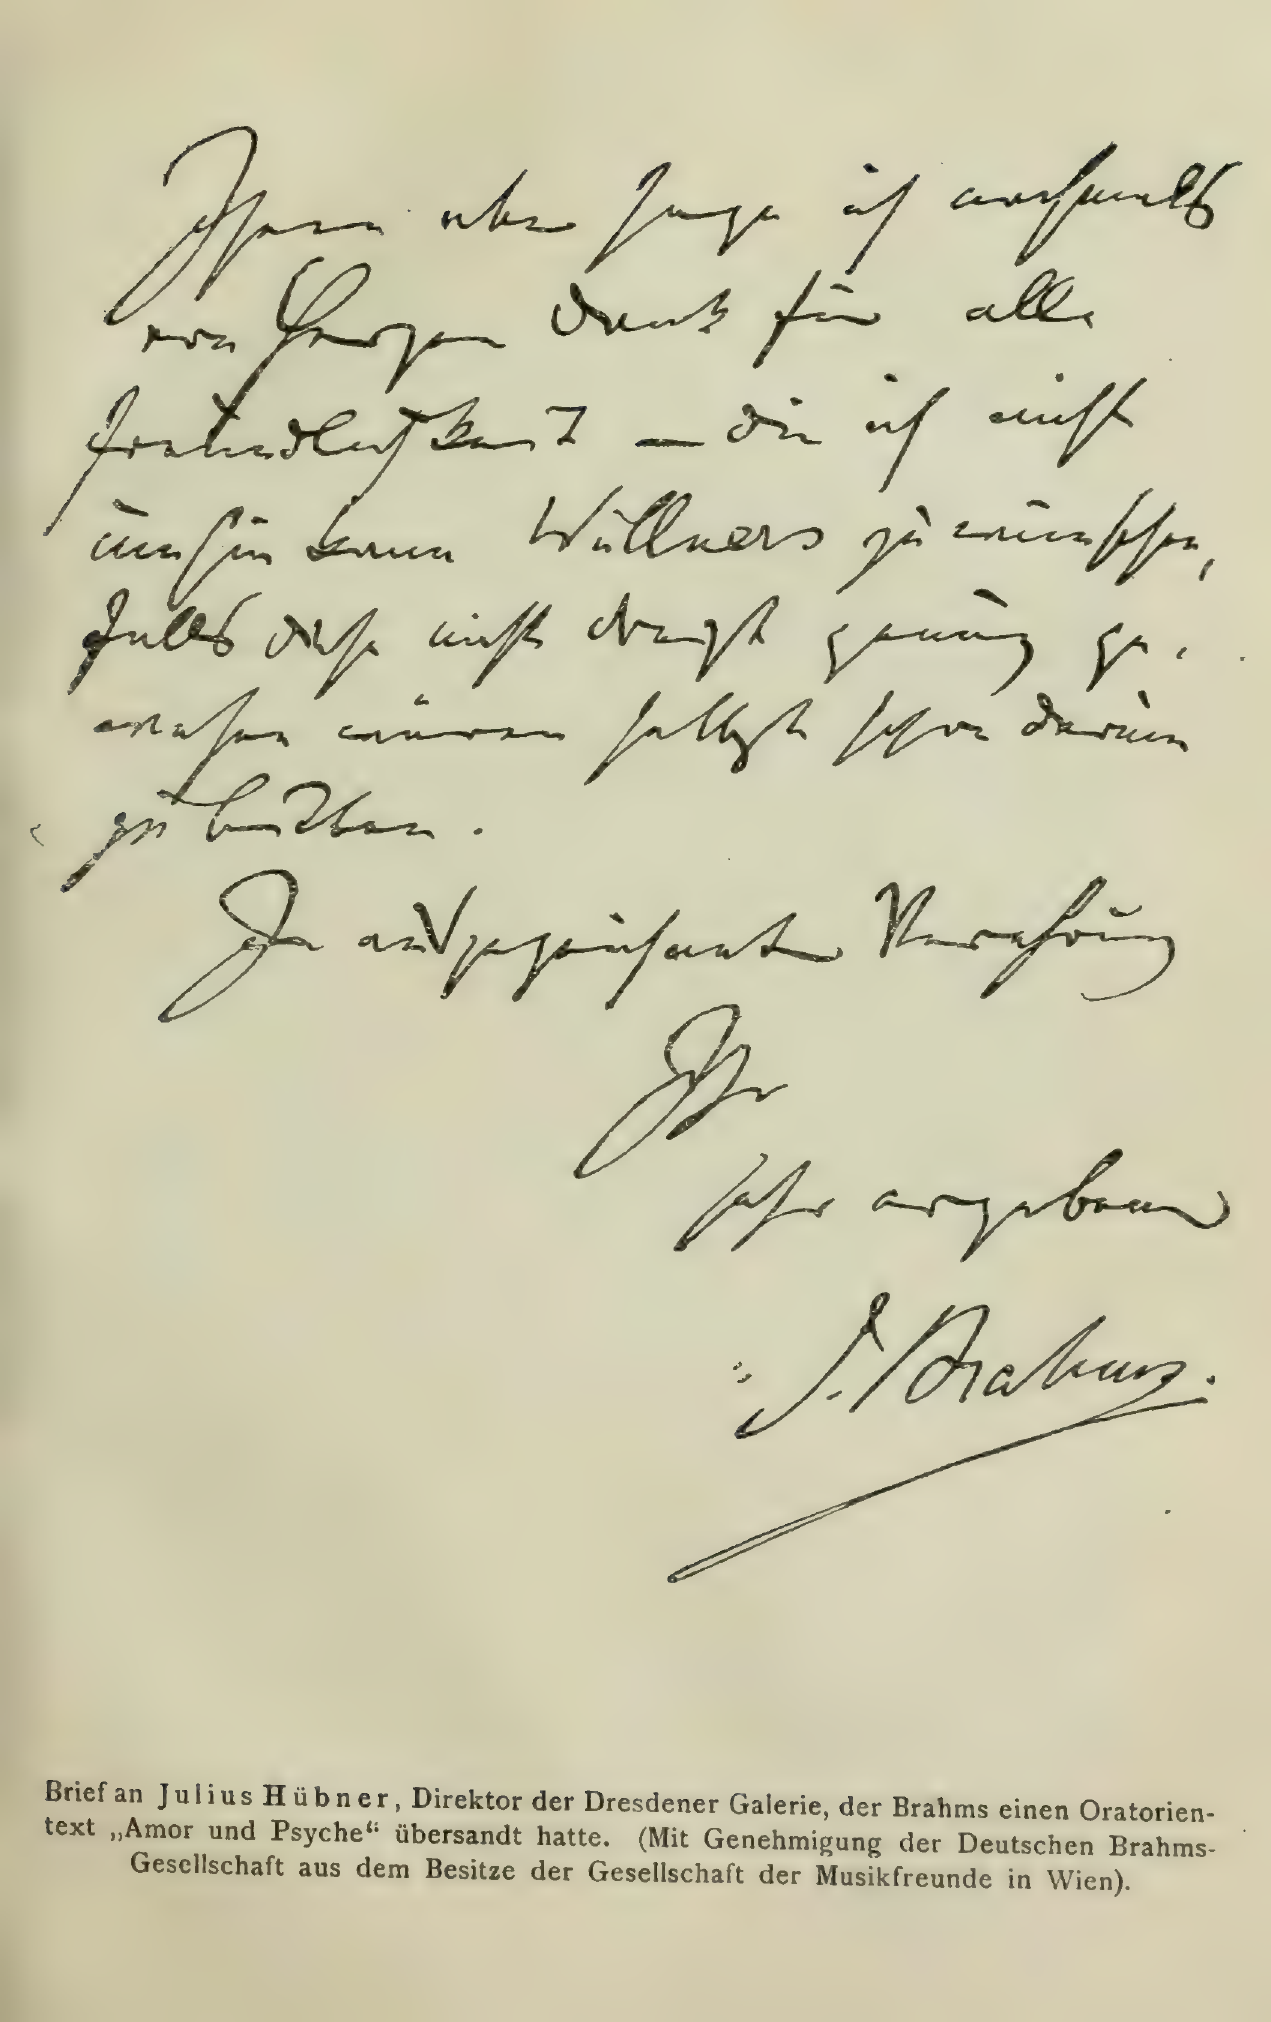 Ihnen aber sage ich nochmals
von Herzen Dank für alle
Freundlichkeit — die ich nicht
umhin kann Wüllners zu wünschen,
falls diese nicht dreist genug ge-
wesen wären selbst schon darum
zu bitten.
In ausgezeichneter Verehrung
Ihr
sehr ergebener
J. Brahms.
Brief an Julius Hübner, Direktor der Dresdener Galerie, der Brahms einen Oratorien-
text „Amor und Psyche“ übersandt hatte. (Mit Genehmigung der Deutschen Brahms-
Gesellschaft aus dem Besitze der Gesellschaft der Musikfreunde in Wien).